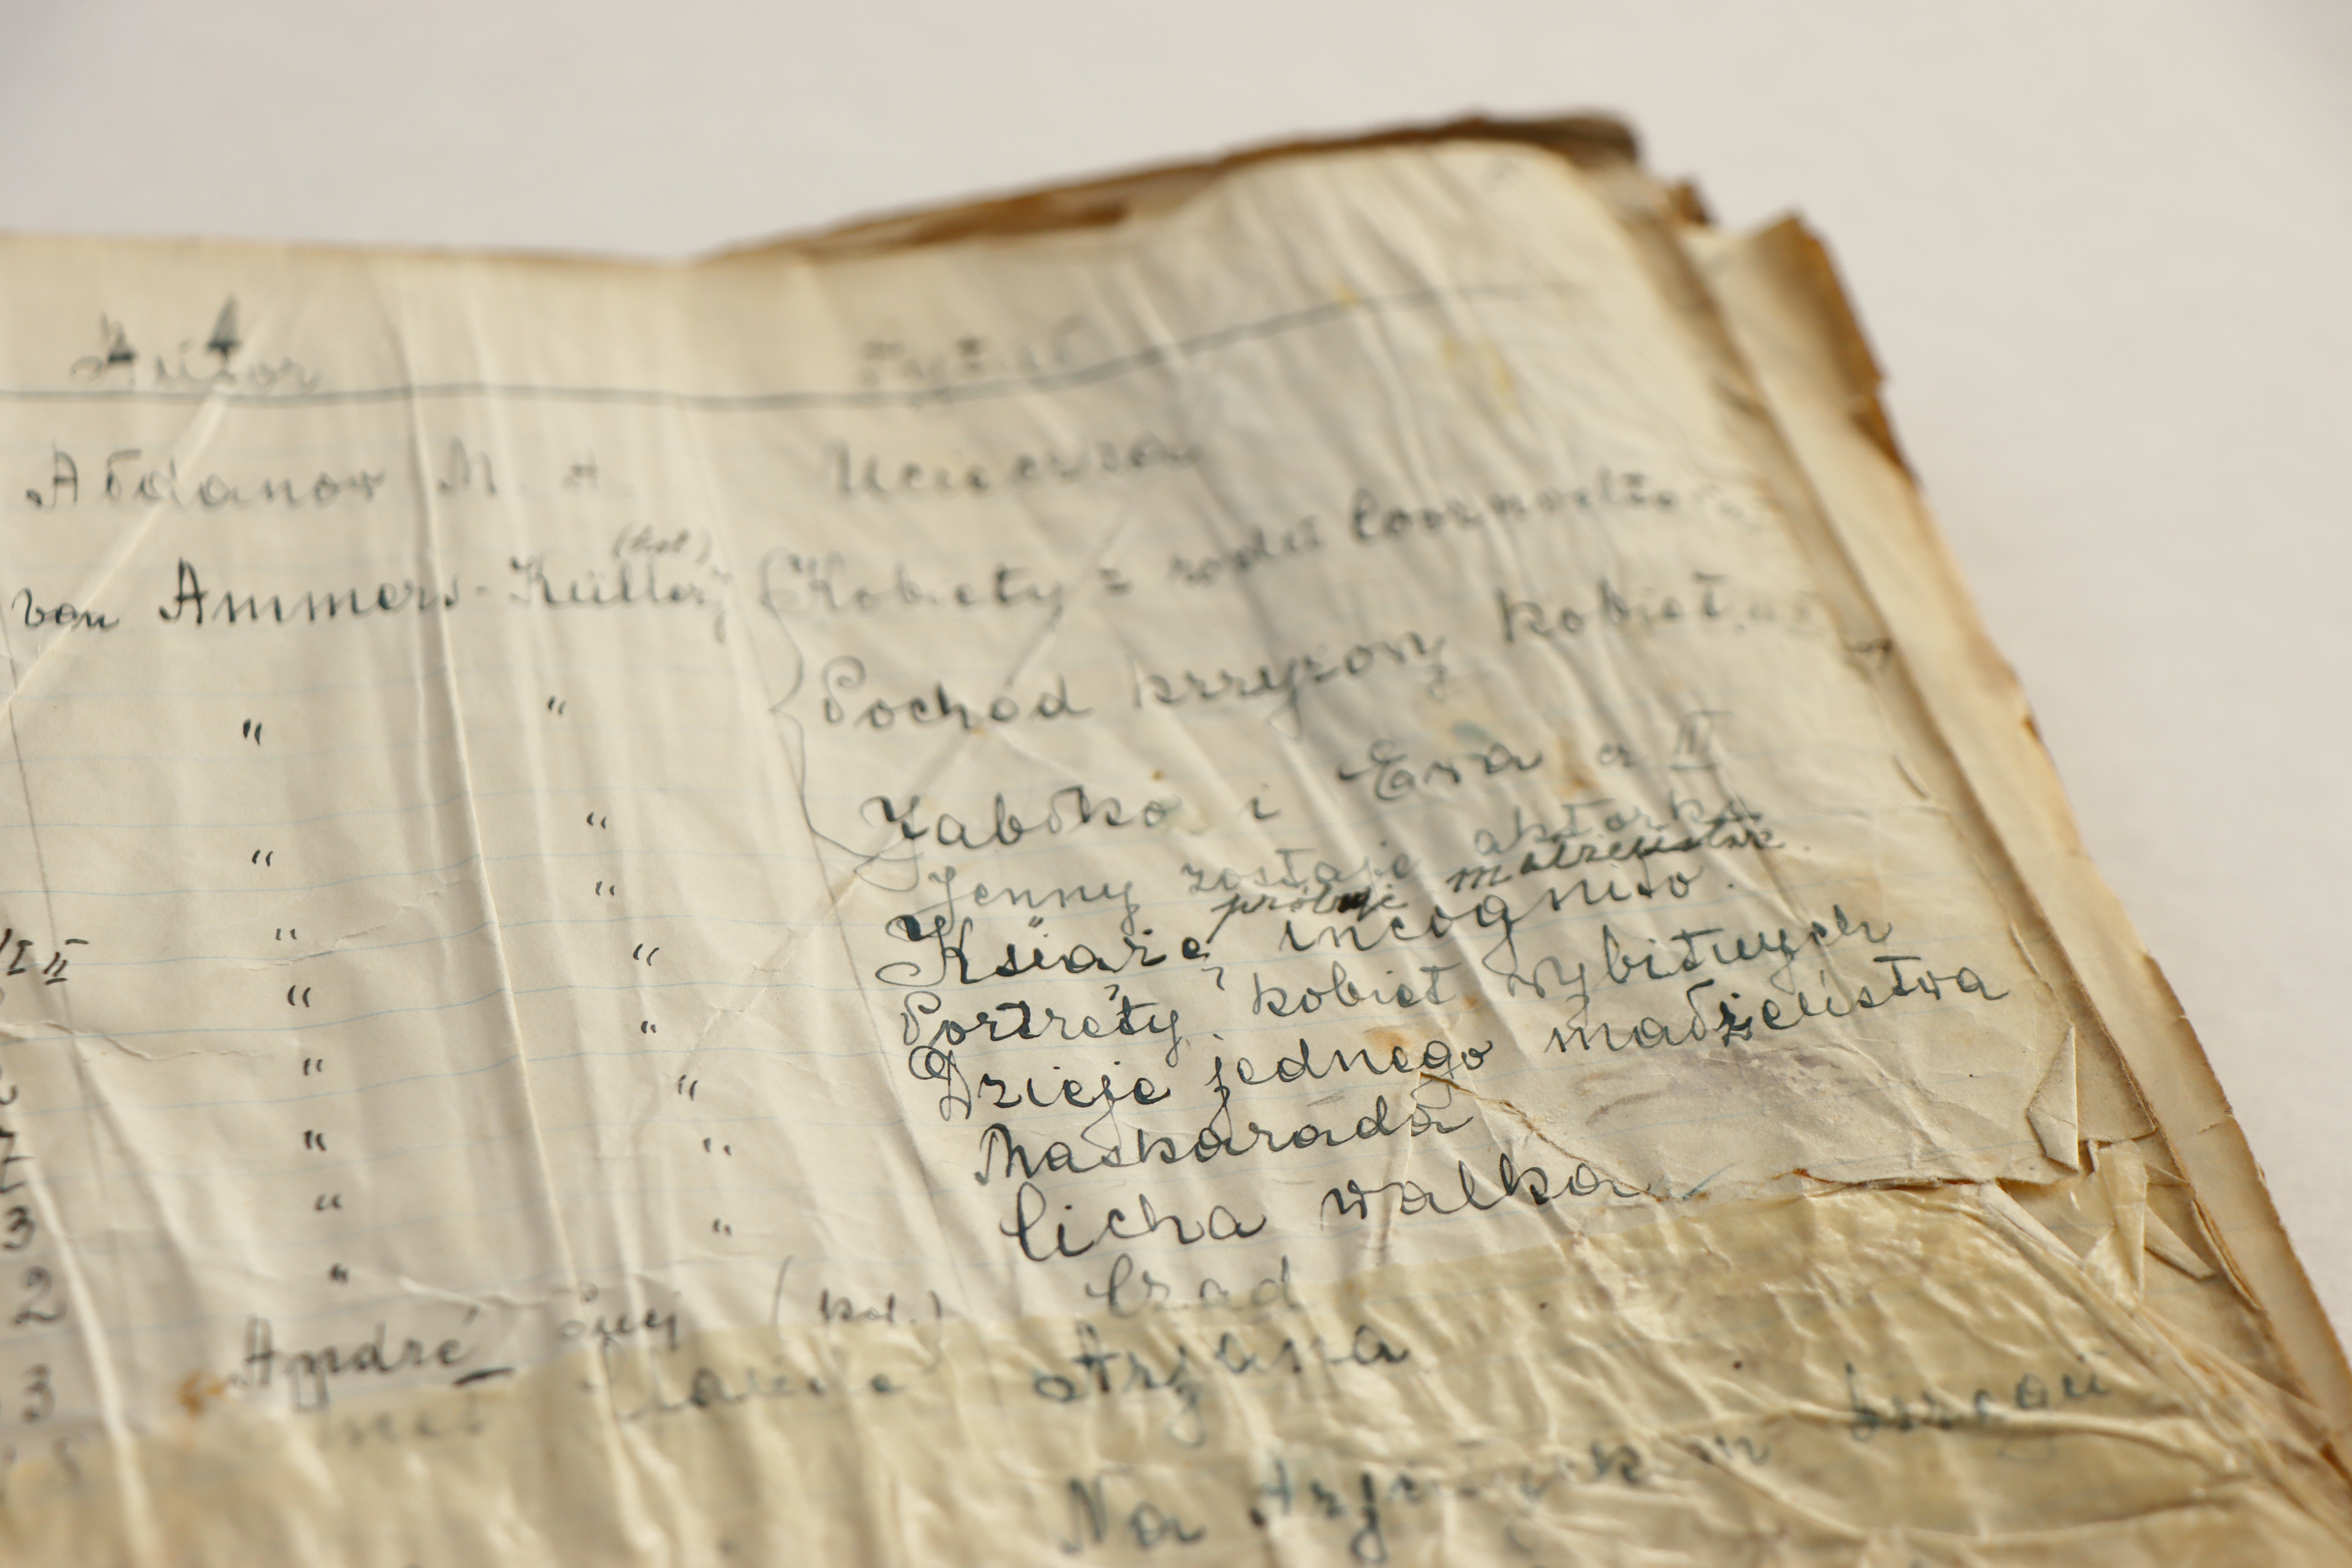 Autor Tytuł
Ałdanow M. A. Ucieczka
van Ammers-Küller (hol) Kobiety z rodu Coornvelt
" " Pochód krzyżowy kobiet
" " Jabłko i Ewa a III
" " Jenny zostaje aktorką
próbuje małżeństwa
I II " " Książę incognito.
" " Portrety kobiet wybitnych
" " Dzieje jednego małżeństwa
" " Maskarada
3 " " Cicha walka
2 "
André (hol.) Czad
3 Arjana
Na brzegu